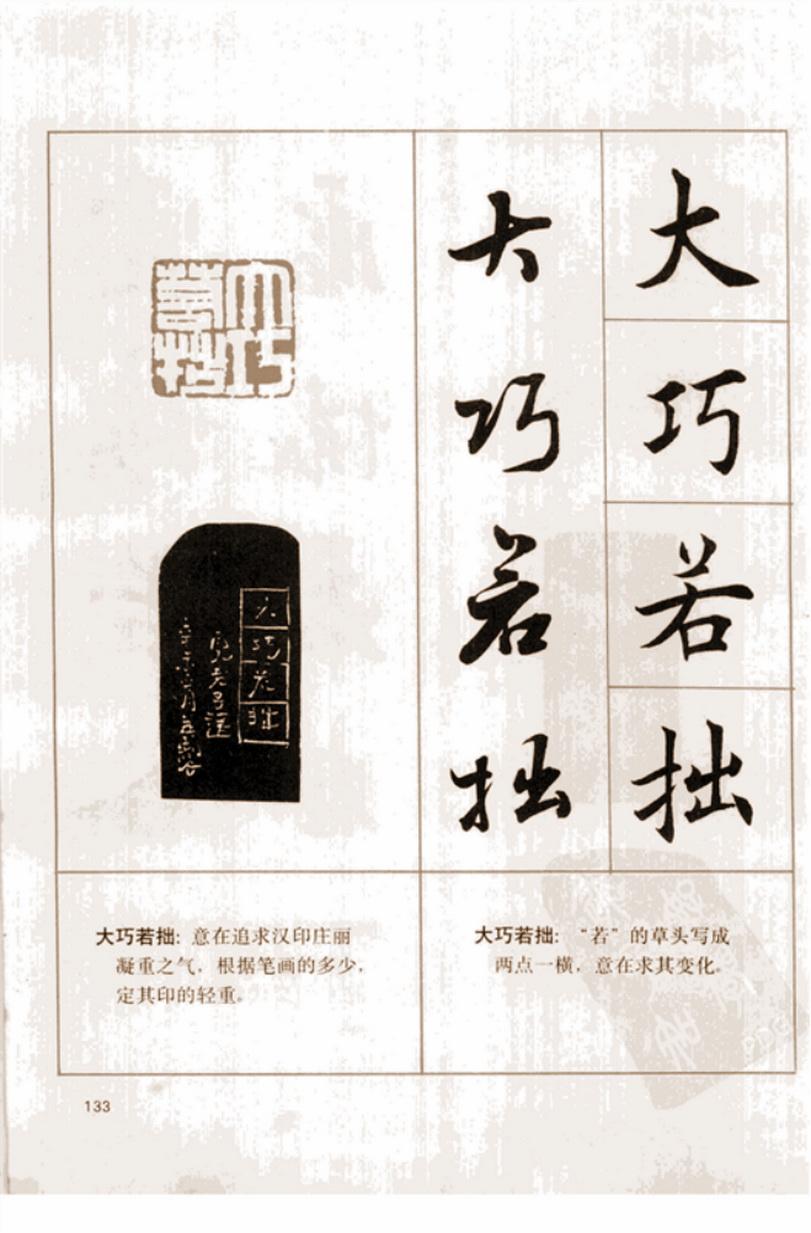 大
巧
若
拙
大
巧
若
拙
大巧
若拙
大巧若拙
大巧若拙：意在追求汉印庄丽
凝重之气，根据笔画的多少，
定其印的轻重。
大巧若拙：“若”的草头写成
两点一横，意在求其变化。
133